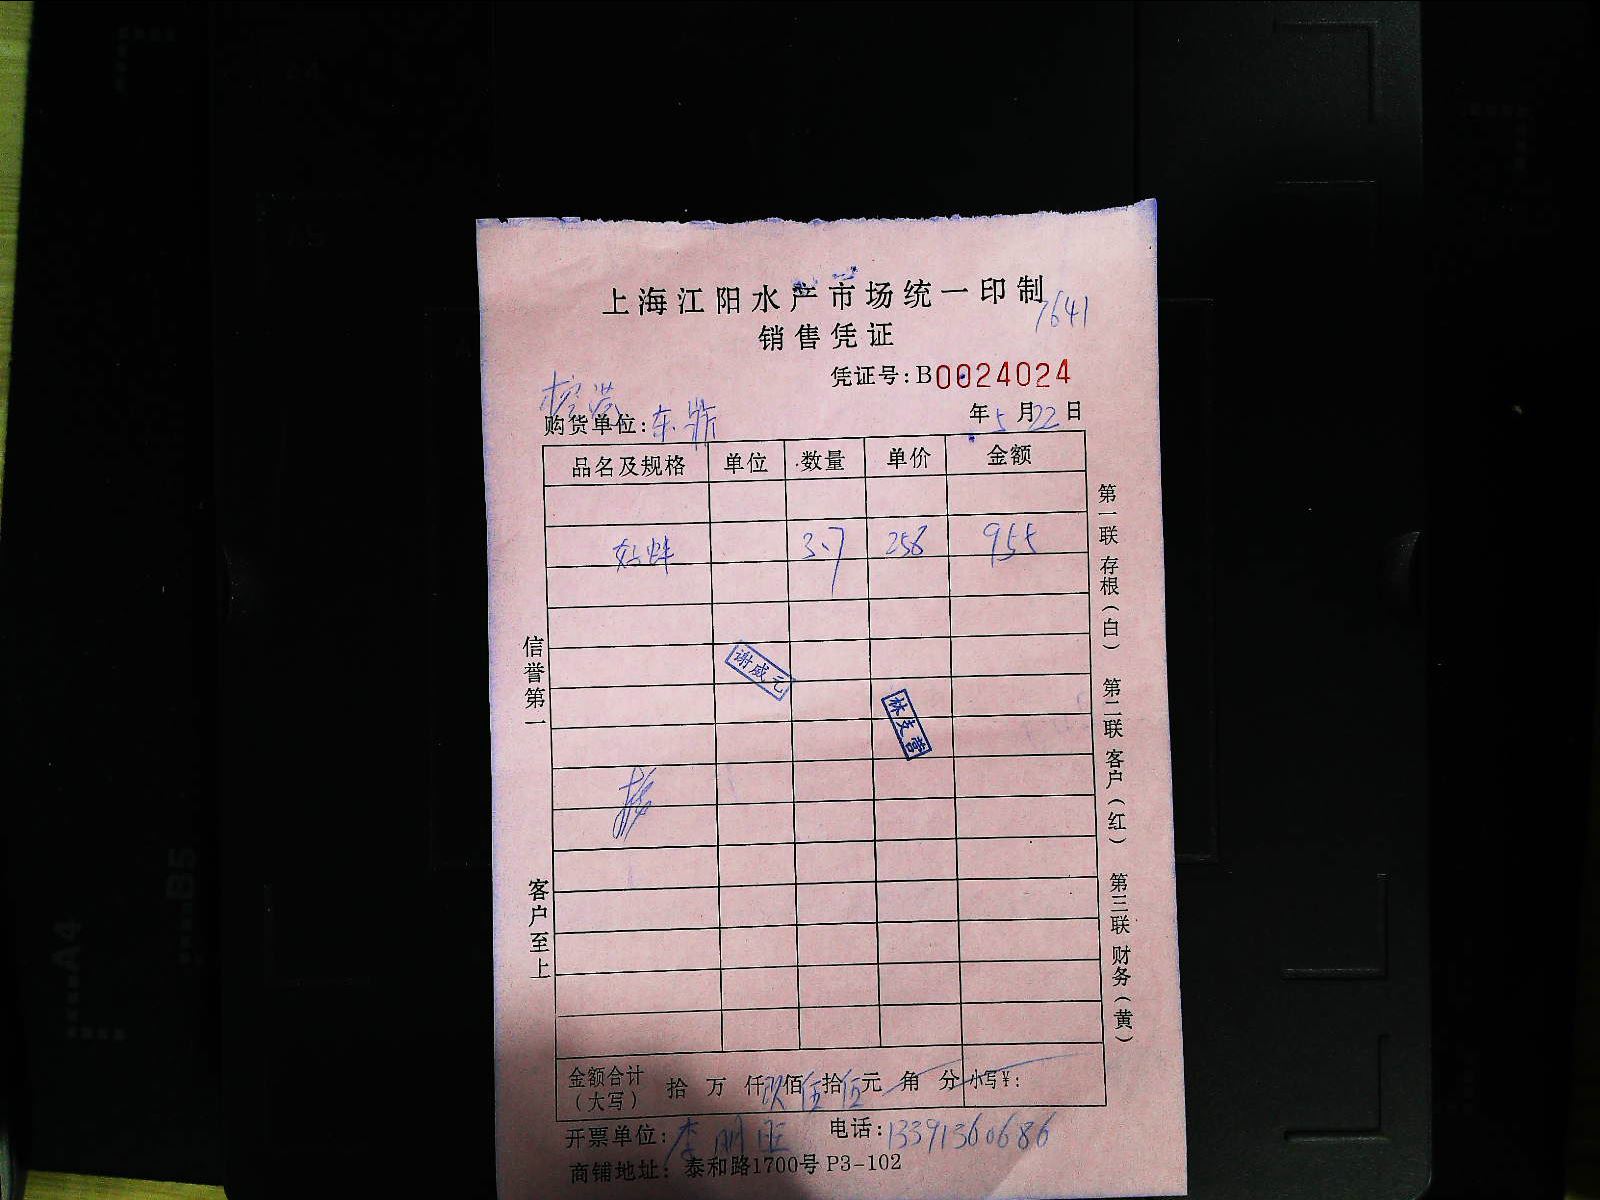 上海江阳水产市场统一印制
7641
销售凭证
凭证号:B0024024
购货单位:东
年5月22日
品名及规格 单位 数量 单价 金额
3.7 256 955
谢威元
林支营
信誉第一
客户至上
第一联 存根(白) 第二联 客户(红) 第三联 财务(黄)
金额合计(大写) 拾 万 仟玖佰伍拾伍元 角 分 小写¥:
开票单位:李明旺 电话:13391360686
商铺地址:泰和路1700号 P3-102